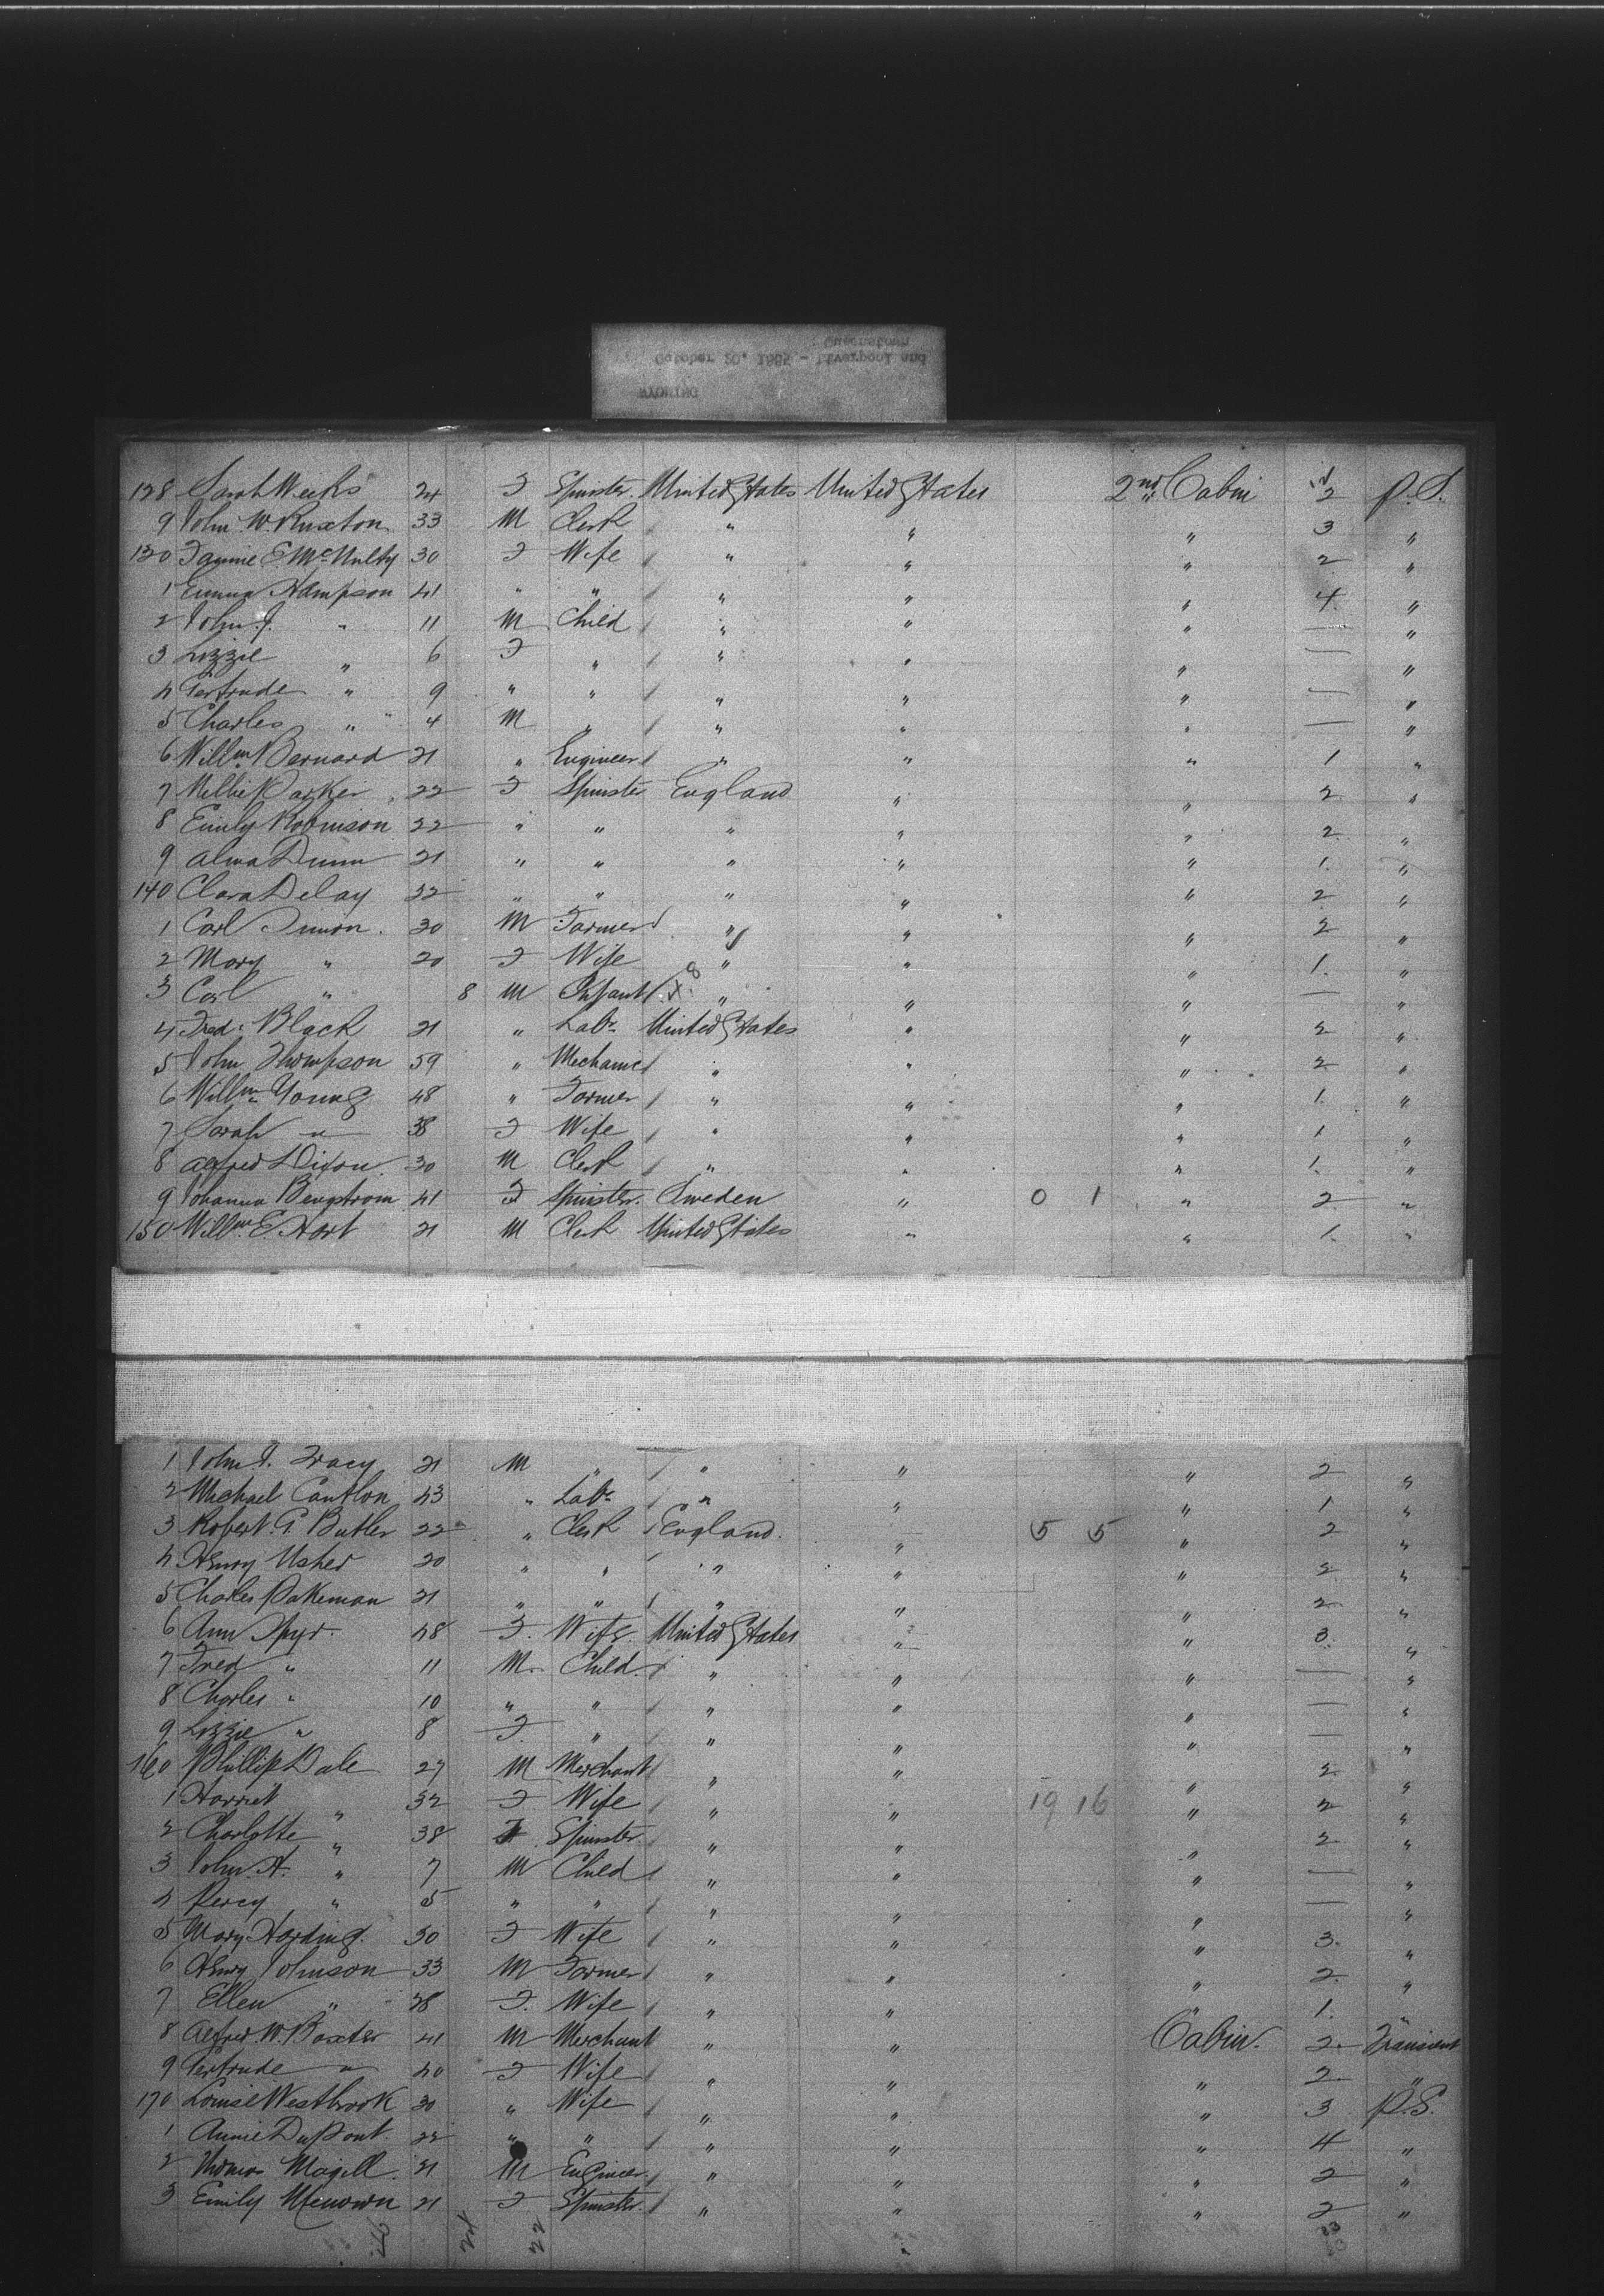 WYOMING
October 20, 1885 - Liverpool and
Queenstown
128 Sarah Weeks 24 F Spinster United States United States 2nd Cabin 2 P.S.
9 John W. Ruxton 33 M Clerk " " " 3 "
130 Fannie E. McNulty 30 F Wife " " " 2 "
1 Emma Hampson 41 " " " " " 4 "
2 John J. " 11 M Child " " " — "
3 Lizzie " 6 F " " " " — "
4 Gertrude " 9 " " " " " — "
5 Charles " 4 M " " " " — "
6 Willm Bernard 21 " Engineer " " " 1 "
7 Millie Parker 22 F Spinster England " " 2 "
8 Emily Robinson 22 " " " " " 2 "
9 Alma Dunn 21 " " " " " 1 "
140 Clara Delay 32 " " " " " 2 "
1 Carl Simon 30 M Farmer " " " 2 "
2 Mary " 20 F Wife " " " 1 "
3 Carl " 8 M Infant " " " — "
4 Fred. Black 21 " Labr United States " " 2 "
5 John Thompson 59 " Mechanic " " " 2 "
6 Willm Young 48 " Farmer " " " 1 "
7 Sarah " 38 F Wife " " " 1 "
8 Alfred Dixon 30 M Clerk " " " 1 "
9 Johanna Bengstrom 41 F Spinster Sweden " 0 1 " 2 "
150 Willm E. Hart 21 M Clerk United States " " 1 "
1 John J. Tracy 21 M " " " " 2 "
2 Michael Cantlon 43 " Labr " " " 1 "
3 Robert G. Butler 22 " Clerk England " 5 5 " 2 "
4 Henry Usher 20 " " " " " 2 "
5 Charles Pakeman 21 " " " " " 2 "
6 Ann 48 F Wife United States " " 3 "
7 Fred " 11 M Child " " " — "
8 Charles " 10 " " " " " — "
9 Lizzie " 8 F " " " " — "
160 Phillip Dale 27 M Merchant " " " 2 "
1 Harriet " 32 F Wife " " 19 16 " 2 "
2 Charlotte " 38 F Spinster " " " 2 "
3 John A. " 7 M Child " " " — "
4 Percy " 5 " " " " " — "
5 Mary Harding 30 F Wife " " " 3 "
6 Henry Johnson 33 M Farmer " " " 2 "
7 Ellen " 28 F Wife " " " 1 "
8 Alfred W. Baxter 41 M Merchant " " Cabin 2 Transient
9 Gertrude " 40 F Wife " " " 2 "
170 Louise Westbrook 30 " Wife " " " 3 P.S.
1 Annie DuPont 22 " " " " " 4 "
2 Thomas Magill 21 M Engineer " " " 2 "
3 Emily 21 F Spinster " " " 2 "